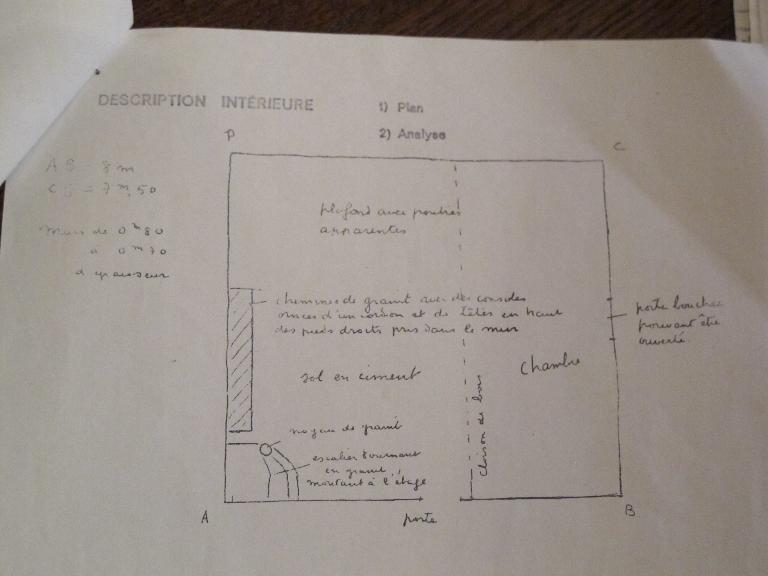 DESCRIPTION INTÉRIEURE
1) Plan
2) Analyse
P
C
AB = 8 m
CB = 7 m, 50
Murs de 0 m 80
à 0 m 70
d'épaisseur
plafond avec poutres
apparentes
cheminée de granit avec des consoles
ornées d'un cordon et de têtes en haut
des pieds droits pris dans le mur
porte bouchée
pouvant être
ouverte
sol en ciment
Chambre
cloison de bois
noyau de granit
escalier tournant
en granit
montant à l'étage
A
porte
B